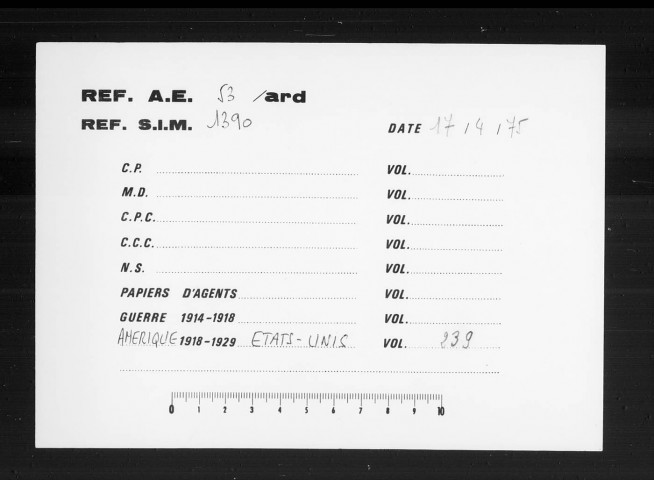 REF. A.E. 53 /ard
REF. S.I.M. 1390
DATE 17 / 4 / 75
C.P. VOL.
M.D. VOL.
C.P.C. VOL.
C.C.C. VOL.
N.S. VOL.
PAPIERS D'AGENTS VOL.
GUERRE 1914-1918 VOL.
AMERIQUE 1918-1929 ETATS-UNIS VOL. 239
0 1 2 3 4 5 6 7 8 9 10